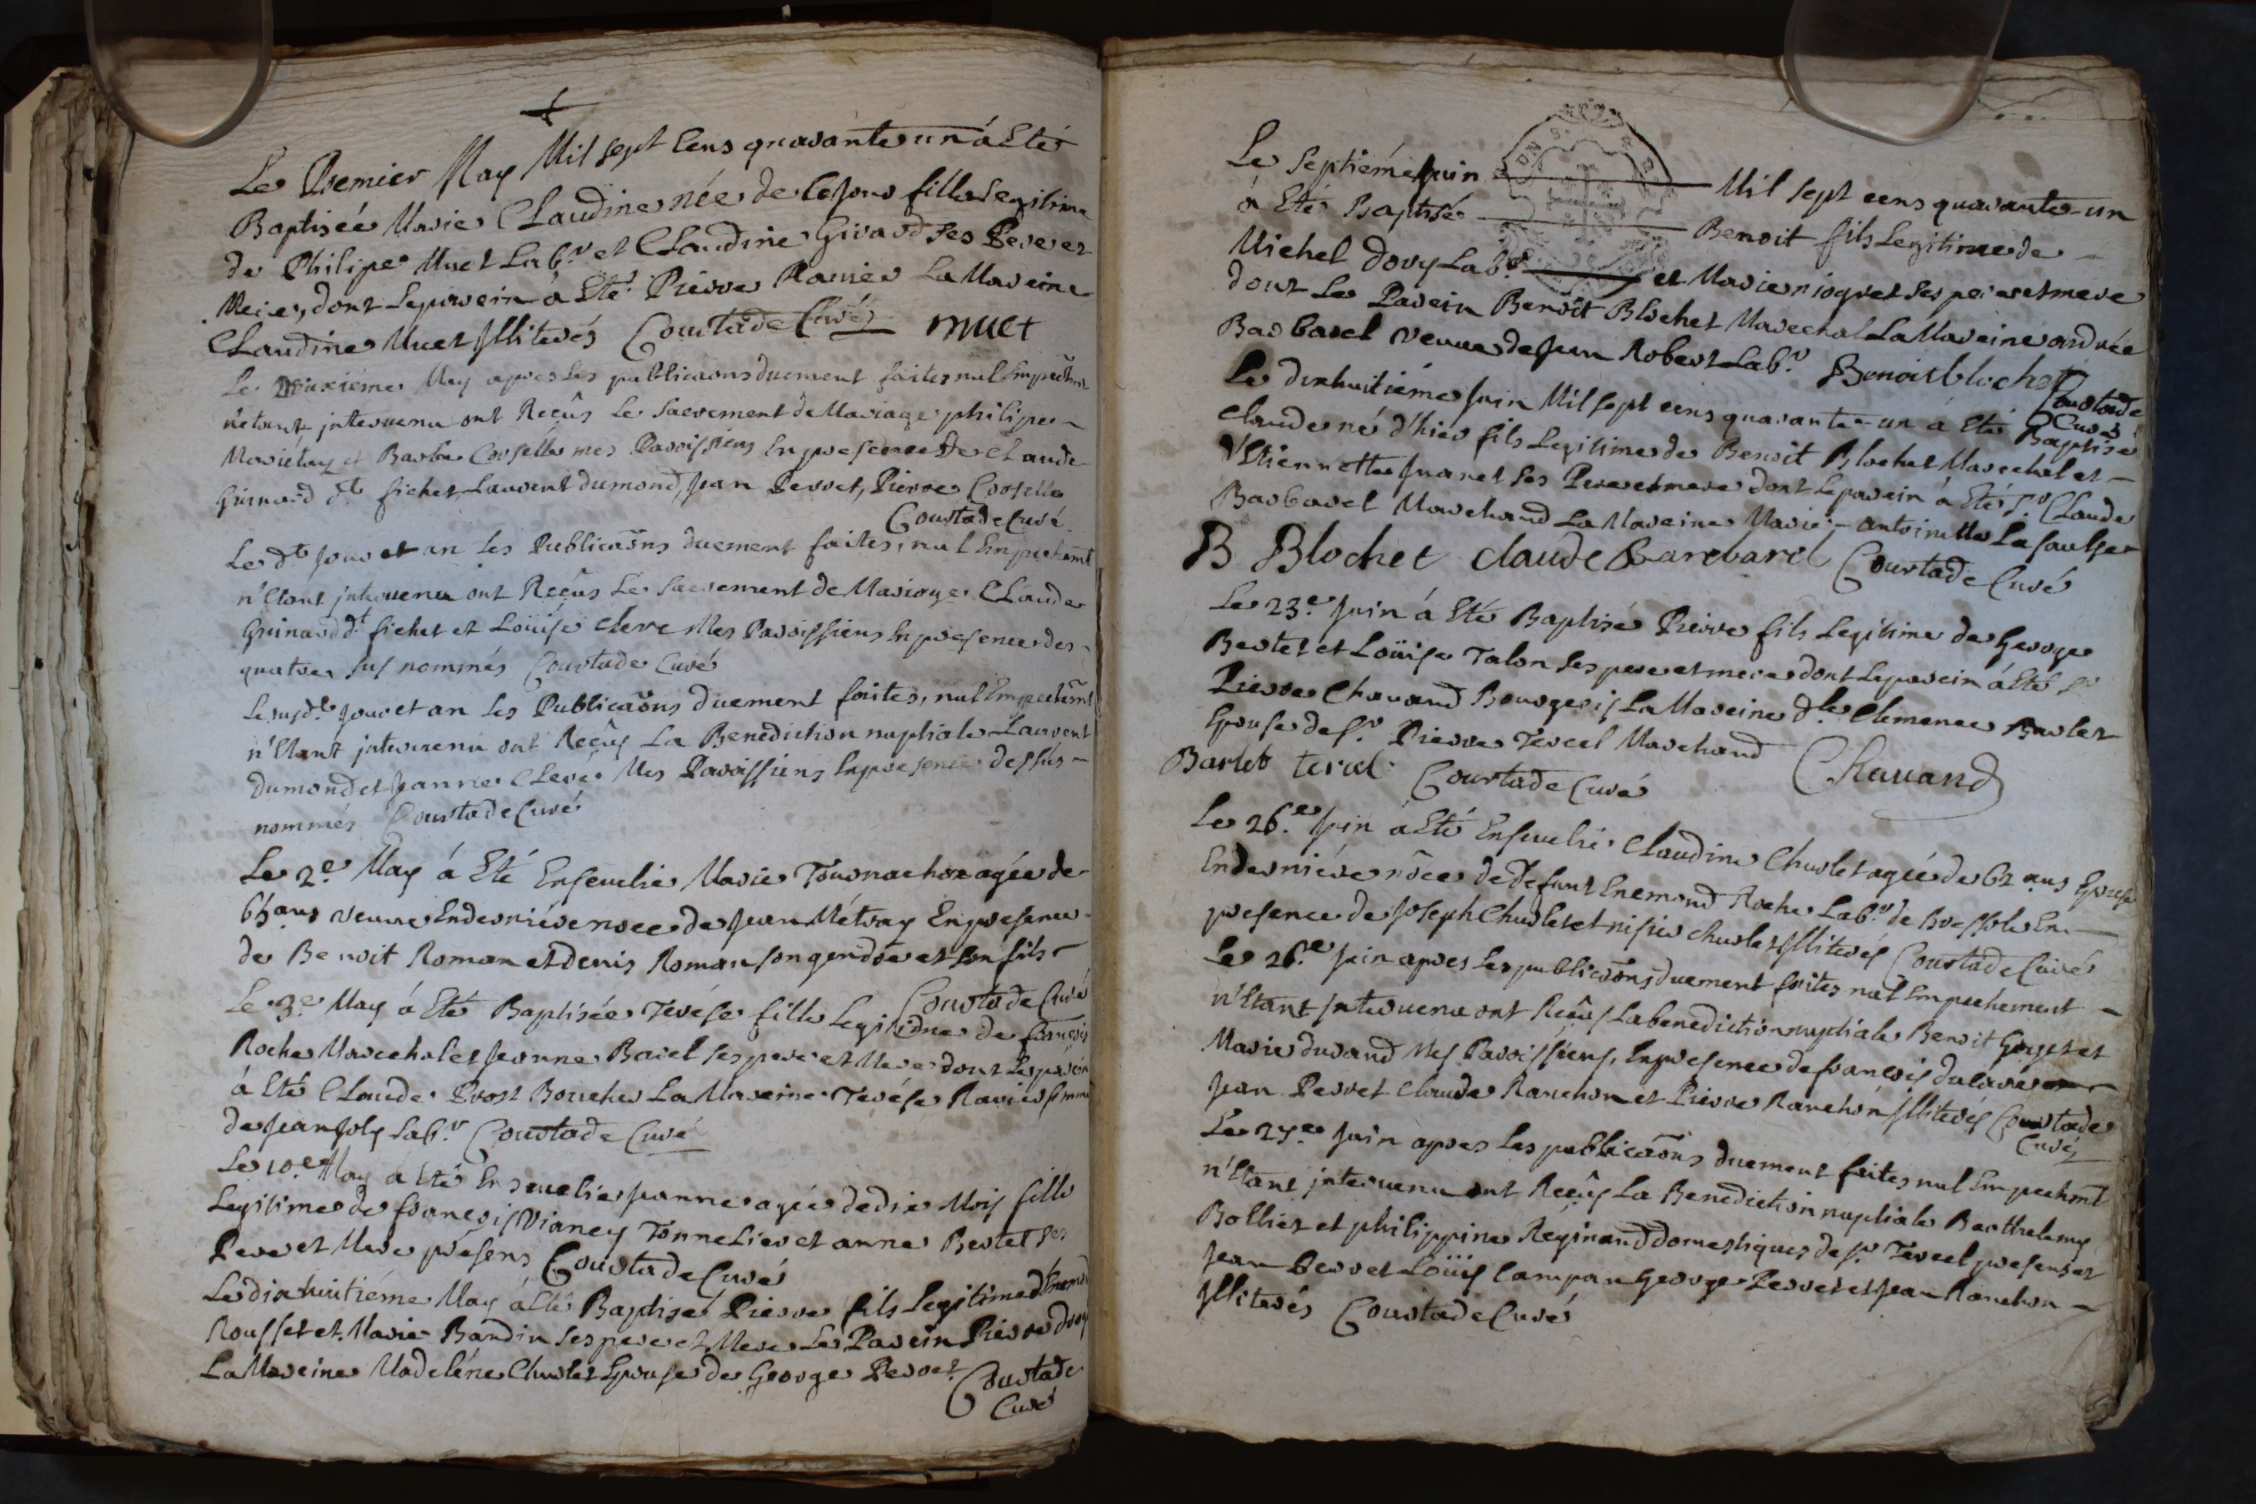 Le Premier May Mil sept Cens quarante un á Eté
Baptisée Marie Claudine née de ce jour fille Legitime
de Philipe Muet Lab.r et Claudine Girard ses Pere et
Mere, dont le parein á Eté Pierre Ranier La Mareine
Claudine Muet Illiterés Courtade Curé muet
Le deuxiéme May apres les publicaõns duement faites nul Empechmt
n'etant intervenu ont Reçûs Le Sacrement de Mariage philipe
et Barbe Corselle mes Paroissiens En presence de Claude
Guinard d.t fichet, Laurent dumond, Jean Perret, Pierre Corselle
Courtade Curé
Le d.t jour et an Les Publicaõns duement faites, nul Empechemt
n'Etant intervenu ont Reçûs Le Sacrement de Mariage Claude
Guinard d.t fichet et Loüise Clere Mes Paroissiens En presence des
quatre sus nommés Courtade Curé
Le susd.t jour et an Les Publicaõns duement faites, nul Empechemt
n'Etant intervenu ont Reçûs La Benediction nuptiale Laurent
dumond et Jeanne Clere Mes Paroissiens En presence des sus
nommés Courtade Curé
Le 2.e May á Eté Ensevelie Marie Tournachon agée de
65 ans veuve En derniére noce de Jean Métray En presence
de Benoit Roman et denis Roman son gendre et son fils
Courtade Curé
Le 3.e May á Eté Baptisée Terése fille Legitime de François
Roche Marechal et Jeanne Barel ses pere et Mere dont Le parein
á Eté Claude Prost Boucher La Mareine Terése Ravier femme
de Jean Joly Lab.r Courtade Curé
Le 10.e May á Eté Ensevelie Jeanne agée de dix Mois fille
Legitime de françois Vianey Tonnelier et anne Bertet ses
Pere et Mere présens Courtade Curé
Le dixhuitiéme May á Eté Baptisé Pierre fils Legitime d'Enemd
Rousset et Marie Bardin ses pere et Mere Le Parein Pierre dory
La Mareine Madeléne Chuslet Epouse de George Perret Courtade
Curé
Le Septiéme Juin Mil sept cens quarante un
á Eté Baptisé Benoit fils Legitime de
Michel dory Lab.r et Marie nioget ses pere et mere
dont Le Parein Benoit Blochet Marechal La Mareine andrée
Barbarel veuve de Jean Robert Lab.r Benoit blochet Courtade
Curé
Le dixhuitiéme Juin Mil sept cens quarante un á Eté Baptisé
Claude né d'hier fils Legitime de Benoit Blochet Marechal et
d'Etiennette Juanet ses Pere et mere dont Le parein á Eté S.r Claude
Barbarel Marchand La Mareine Marie antoinette La faulse
B Blochet claude Barbarel Courtade Curé
Le 23.e Juin á Eté Baptisé Pierre fils Legitime de George
Bertet et Loüise Talon ses pere et mere dont Le parein á Eté S.r
Pierre Chavand Bourgeois La Mareine d.lle Clemence Barlet
Epouse de S.r Pierre Tercel Marchand Chauand
Barlet tercel Courtade Curé
Le 26.e Juin á Eté Ensevelie Claudine Chuslet agée de 62 ans Epouse
En derniére nôce de defunt Enemond Roche Lab.r de En
presence de Joseph Chuslet et nisier chuslet Illiterés Courtade Curé
Le 26.e Juin apres les publicaõns duement faites nul Empechement
n'Etant intervenu ont Reçûs La benediction nuptiale Benoit Goyet et
Marie durand Mes Paroissiens, En presence de françois
Jean Perret Claude Ranchon et Pierre Ranchon Illiterés Courtade
Curé
Le 27.e Juin apres Les publicaõns duement faites nul Empechmt
n'Etant intervenu ont Reçûs La Benediction nuptiale Barthelemy
Bolliet et philippine Reginand domestiques de S.r Tercel presens et
Jean Perret Loüis Campan George Perret et Jean Ranchon
Illiterés Courtade Curé